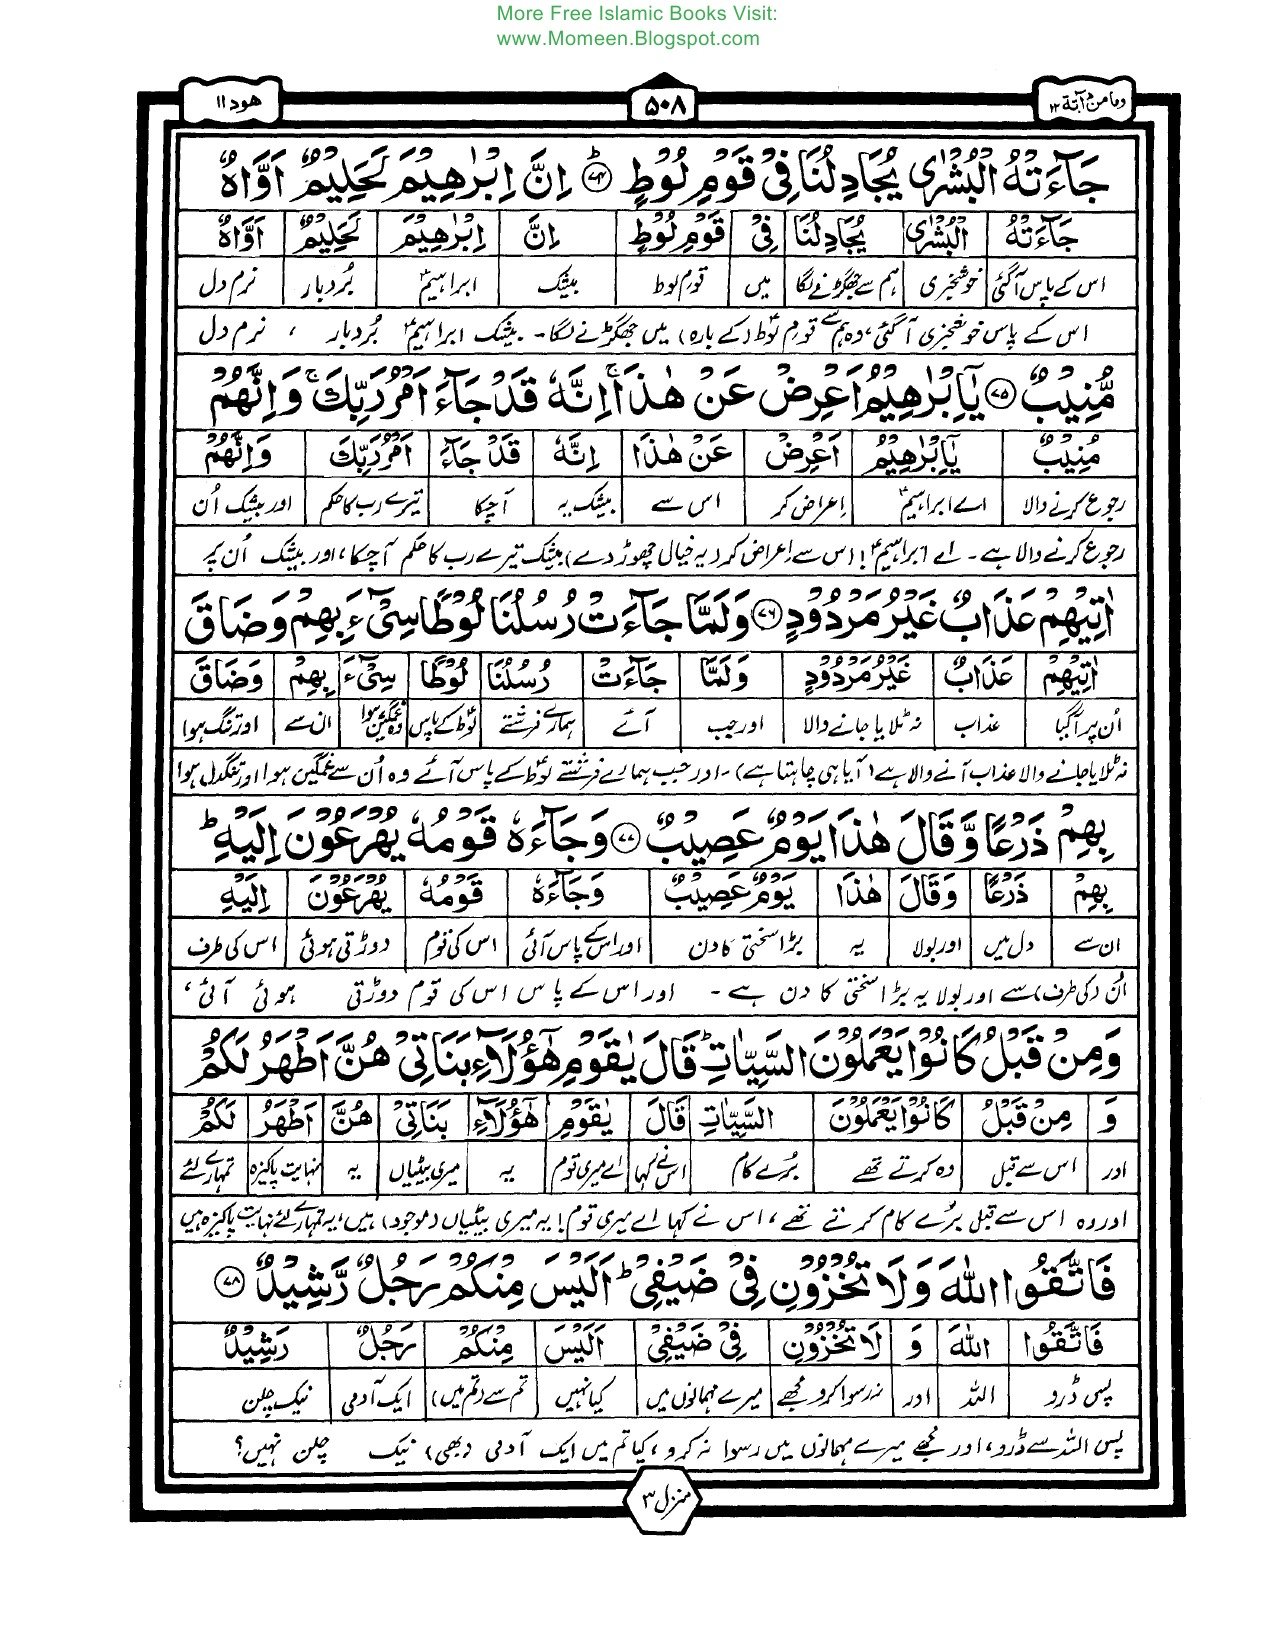 More Free Islamic Books Visit:
www.Momeen.Blogspot.com
وما من دآبة ۱۲ ۵۰۸ هود ۱۱
جَآءَتْهُ الْبُشْرٰى يُجَادِلُنَا فِیْ قَوْمِ لُوْطٍؕ ﴿۷۴﴾ اِنَّ اِبْرٰهِیْمَ لَحَلِیْمٌ اَوَّاهٌ
جَآءَتْهُ الْبُشْرٰى يُجَادِلُنَا فِیْ قَوْمِ لُوْطٍ اِنَّ اِبْرٰهِیْمَ لَحَلِیْمٌ اَوَّاهٌ
اس کے پاس آگئی خوشخبری ہم سے جھگڑنے لگا میں قوم لوط بیشک ابراہیمؑ بُردبار نرم دل
اس کے پاس خوشخبری آگئی، وہ ہم سے قوم لوطؑ (کے بارہ) میں جھگڑنے لگا۔ بیشک ابراہیمؑ بُردبار ، نرم دل
مُّنِیْبٌ ﴿۷۵﴾ یٰۤاِبْرٰهِیْمُ اَعْرِضْ عَنْ هٰذَاۚ اِنَّهٗ قَدْ جَآءَ اَمْرُ رَبِّكَۚ وَاِنَّهُمْ
مُنِیْبٌ یٰۤاِبْرٰهِیْمُ اَعْرِضْ عَنْ هٰذَا اِنَّهٗ قَدْ جَآءَ اَمْرُ رَبِّكَ وَاِنَّهُمْ
رجوع کرنے والا اے ابراہیمؑ اعراض کر اس سے بیشک یہ آچکا تیرے رب کا حکم اور بیشک اُن
رجوع کرنے والا ہے۔ اے ابراہیمؑ! اس سے اعراض کر (یہ خیال چھوڑ دے) بیشک تیرے رب کا حکم آچکا، اور بیشک اُن پر
اٰتِیْهِمْ عَذَابٌ غَیْرُ مَرْدُوْدٍ ﴿۷۶﴾ وَلَمَّا جَآءَتْ رُسُلُنَا لُوْطًا سِیْٓءَ بِهِمْ وَضَاقَ
اٰتِیْهِمْ عَذَابٌ غَیْرُ مَرْدُوْدٍ وَلَمَّا جَآءَتْ رُسُلُنَا لُوْطًا سِیْٓءَ بِهِمْ وَضَاقَ
اُن پر آگیا عذاب نہ ٹلایا جانے والا اور جب آئے ہمارے فرشتے لوطؑ کے پاس وہ غمگین ہوا ان سے اور تنگ ہوا
نہ ٹلایا جانے والا عذاب آنے والا ہے (آیا ہی چاہتا ہے)۔ اور جب ہمارے فرشتے لوطؑ کے پاس آئے وہ اُن سے غمگین ہوا اور تنگدل ہوا
بِهِمْ ذَرْعًا وَّقَالَ هٰذَا یَوْمٌ عَصِیْبٌ ﴿۷۷﴾ وَجَآءَهٗ قَوْمُهٗ یُهْرَعُوْنَ اِلَیْهِؕ
بِهِمْ ذَرْعًا وَقَالَ هٰذَا یَوْمٌ عَصِیْبٌ وَجَآءَهٗ قَوْمُهٗ یُهْرَعُوْنَ اِلَیْهِ
ان سے دل میں اور بولا یہ بڑا سختی کا دن اور اس کے پاس آئی اس کی قوم دوڑتی ہوئی اس کی طرف
ان (کی طرف) سے اور بولا یہ بڑا سختی کا دن ہے۔ اور اس کے پاس اس کی قوم دوڑتی ہوئی آئی ،
وَمِنْ قَبْلُ كَانُوْا یَعْمَلُوْنَ السَّیِّاٰتِؕ قَالَ یٰقَوْمِ هٰۤؤُلَآءِ بَنَاتِیْ هُنَّ اَطْهَرُ لَكُمْ
وَ مِنْ قَبْلُ كَانُوْا یَعْمَلُوْنَ السَّیِّاٰتِ قَالَ یٰقَوْمِ هٰۤؤُلَآءِ بَنَاتِیْ هُنَّ اَطْهَرُ لَكُمْ
اور اس سے قبل وہ کرتے تھے بُرے کام اس نے کہا اے میری قوم یہ میری بیٹیاں یہ نہایت پاکیزہ تمہارے لئے
اور وہ اس سے قبل بُرے کام کرتے تھے، اس نے کہا اے میری قوم! یہ میری بیٹیاں (موجود) ہیں، یہ تمہارے لئے نہایت پاکیزہ ہیں
فَاتَّقُوا اللّٰهَ وَلَا تُخْزُوْنِ فِیْ ضَیْفِیْؕ اَلَیْسَ مِنْكُمْ رَجُلٌ رَّشِیْدٌ ﴿۷۸﴾
فَاتَّقُوا اللّٰهَ وَ لَا تُخْزُوْنِ فِیْ ضَیْفِیْ اَلَیْسَ مِنْكُمْ رَجُلٌ رَشِیْدٌ
پس ڈرو اللہ اور نہ رسوا کرو مجھے میرے مہمانوں میں کیا نہیں تم سے (تم میں) ایک آدمی نیک چلن
پس اللہ سے ڈرو، اور مجھے میرے مہمانوں میں رسوا نہ کرو، کیا تم میں ایک آدمی (بھی) نیک چلن نہیں؟
منزل ۳